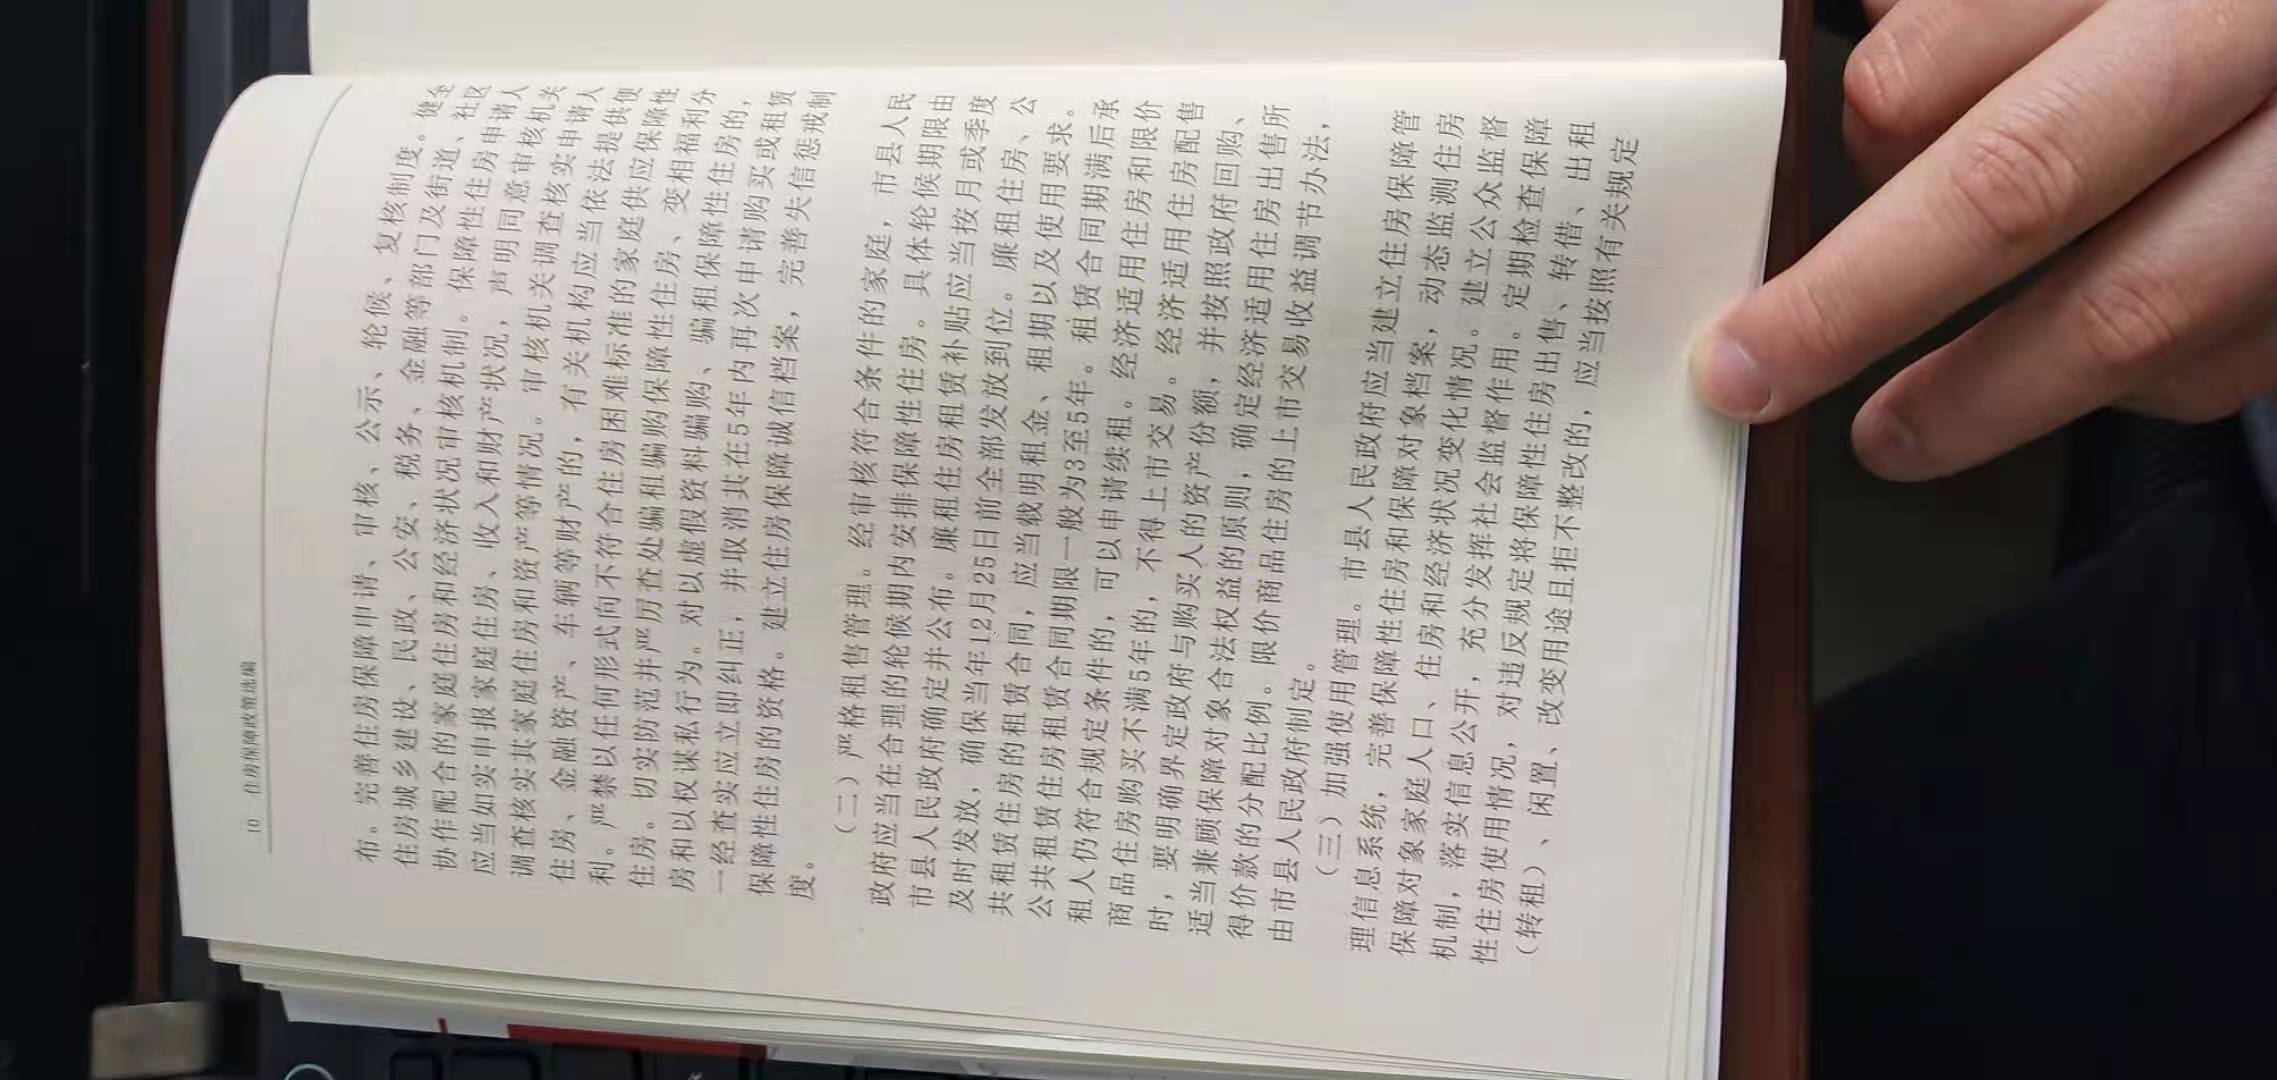 10 住房保障政策选编
布。完善住房保障申请、审核、公示、轮候、复核制度。健全
住房城乡建设、民政、公安、税务、金融等部门及街道、社区
协作配合的家庭住房和经济状况审核机制。保障性住房申请人
应当如实申报家庭住房、收入和财产状况，声明同意审核机关
调查核实其家庭住房和资产等情况。审核机关调查核实申请人
住房、金融资产、车辆等财产的，有关机构应当依法提供便
利。严禁以任何形式向不符合住房困难标准的家庭供应保障性
住房。切实防范并严厉查处骗租骗购保障性住房、变相福利分
房和以权谋私行为。对以虚假资料骗购、骗租保障性住房的，
一经查实应立即纠正，并取消其在5年内再次申请购买或租赁
保障性住房的资格。建立住房保障诚信档案，完善失信惩戒制
度。
（二）严格租售管理。经审核符合条件的家庭，市县人民
政府应当在合理的轮候期内安排保障性住房。具体轮候期限由
市县人民政府确定并公布。廉租住房租赁补贴应当按月或季度
及时发放，确保当年12月25日前全部发放到位。廉租住房、公
共租赁住房的租赁合同，应当载明租金、租期以及使用要求。
公共租赁住房租赁合同期限一般为3至5年。租赁合同期满后承
租人仍符合规定条件的，可以申请续租。经济适用住房和限价
商品住房购买不满5年的，不得上市交易。经济适用住房配售
时，要明确界定政府与购买人的资产份额，并按照政府回购、
适当兼顾保障对象合法权益的原则，确定经济适用住房出售所
得价款的分配比例。限价商品住房的上市交易收益调节办法，
由市县人民政府制定。
（三）加强使用管理。市县人民政府应当建立住房保障管
理信息系统，完善保障性住房和保障对象档案，动态监测住房
保障对象家庭人口、住房和经济状况变化情况。建立公众监督
机制，落实信息公开，充分发挥社会监督作用。定期检查保障
性住房使用情况，对违反规定将保障性住房出售、转借、出租
（转租）、闲置、改变用途且拒不整改的，应当按照有关规定